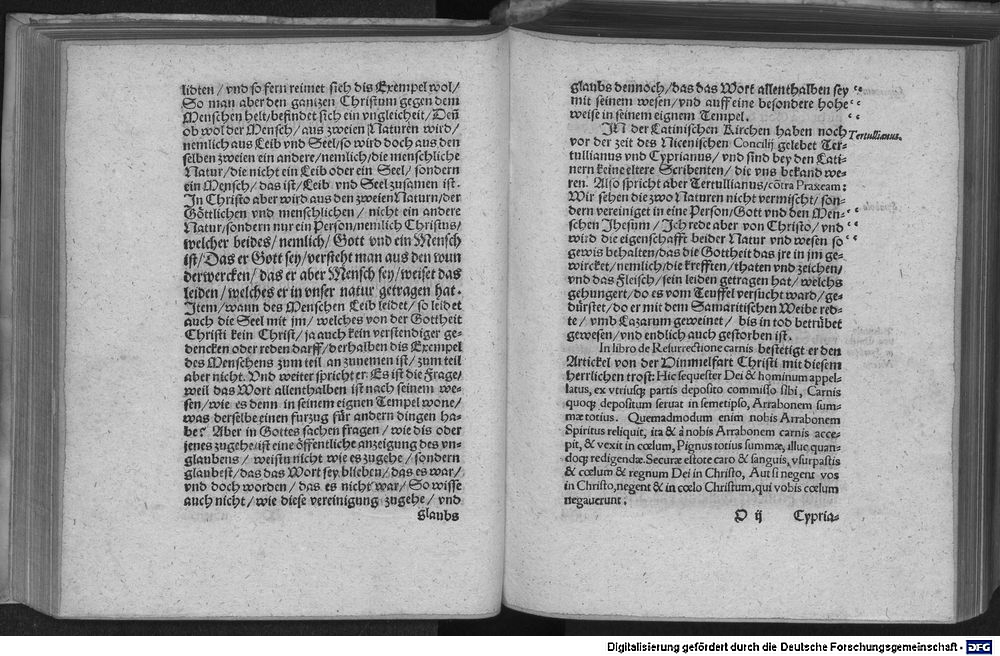 lidten / vnd so fern reimet sich dis Exempel wol /
So man aber den gantzen Christum gegen dem
Menschen helt / befindet sich ein vngleicheit / Deñ
ob wol der Mensch / aus zweien Naturen wird /
nemlich aus Leib vnd Seel / so wird doch aus den
selben zweien ein andere / nemlich / die menschliche
Natur / die nicht ein Leib oder ein Seel / sondern
ein Mensch / das ist / Leib vnd Seel zusamen ist.
In Christo aber wird aus den zweien Naturn / der
Göttlichen vnd menschlichen / nicht ein andere
Natur / sondern nur ein Person / nemlich Christus /
welcher beides / nemlich / Gott vnd ein Mensch
ist / Das er Gott sey / versteht man aus den wun
derwercken / das er aber Mensch sey / weiset das
leiden / welches er in vnser natur getragen hat.
Item / wann des Menschen Leib leidet / so leidet
auch die Seel mit jm / welches von der Gottheit
Christi kein Christ / ja auch kein verstendiger ge-
dencken oder reden darff / derhalben dis Exempel
des Menschens zum teil an zunemen ist / zum teil
aber nicht. Vnd weiter spricht er: Es ist die Frage /
weil das Wort allenthalben ist nach seinem we-
sen / wie es denn in seinem eignen Tempel wone /
was derselbe einen furzug für andern dingen ha-
be? Aber in Gottes sachen fragen / wie dis oder
jenes zugehe / ist eine öffentliche anzeigung des vn-
glaubens / weistu nicht wie es zugehe / sondern
glaubest / das das Wort sey blieben / das es war /
vnd doch worden / das es nicht war / So wisse
auch nicht / wie diese vereinigung zugehe / vnd
glaubs
glaubs dennoch / das das Wort allenthalben sey
mit seinem wesen / vnd auff eine besondere hohe
weise in seinem eignem Tempel.
IN der Latinischen Kirchen haben noch
Tertullianus.
vor der zeit des Nicenischen Concilij gelebet Ter-
tullianus vnd Cyprianus / vnd sind bey den Lati-
nern keine eltere Scribenten / die vns bekand we-
ren. Also spricht aber Tertullianus / cõtra Praxeam:
Wir sehen die zwo Naturen nicht vermischt / son-
dern vereiniget in eine Person / Gott vnd den Men-
schen Jhesum / Ich rede aber von Christo / vnd
wird die eigenschafft beider Natur vnd wesen so
gewis behalten / das die Gottheit das jre in jm ge-
wircket / nemlich / die krefften / thaten vnd zeichen /
vnd das Fleisch / sein leiden getragen hat / welchs
gehungert / do es vom Teuffel versucht ward / ge-
dürstet / do er mit dem Samaritischen Weibe red-
te / vmb Lazarum geweinet / bis in tod betrübet
gewesen / vnd endlich auch gestorben ist.
In libro de Resurrectione carnis bestetigt er den
Artickel von der Himmelfart Christi mit diesem
herrlichen trost: Hic sequester Dei & hominum appel-
latus, ex vtriusq; partis deposito commisso sibi, Carnis
quoq; depositum seruat in semetipso, Arrabonem sum-
mæ totius. Quemadmodum enim nobis Arrabonem
Spiritus reliquit, ita & à nobis Arrabonem carnis acce-
pit, & vexit in cœlum, Pignus totius summæ, illuc quan-
doq; redigendæ. Securæ estote caro & sanguis, vsurpastis
& cœlum & regnum Dei in Christo, Aut si negent vos
in Christo, negent & in cœlo Christum, qui vobis cœlum
negauerunt.
O ij Cypria-
Digitalisierung gefördert durch die Deutsche Forschungsgemeinschaft - DFG